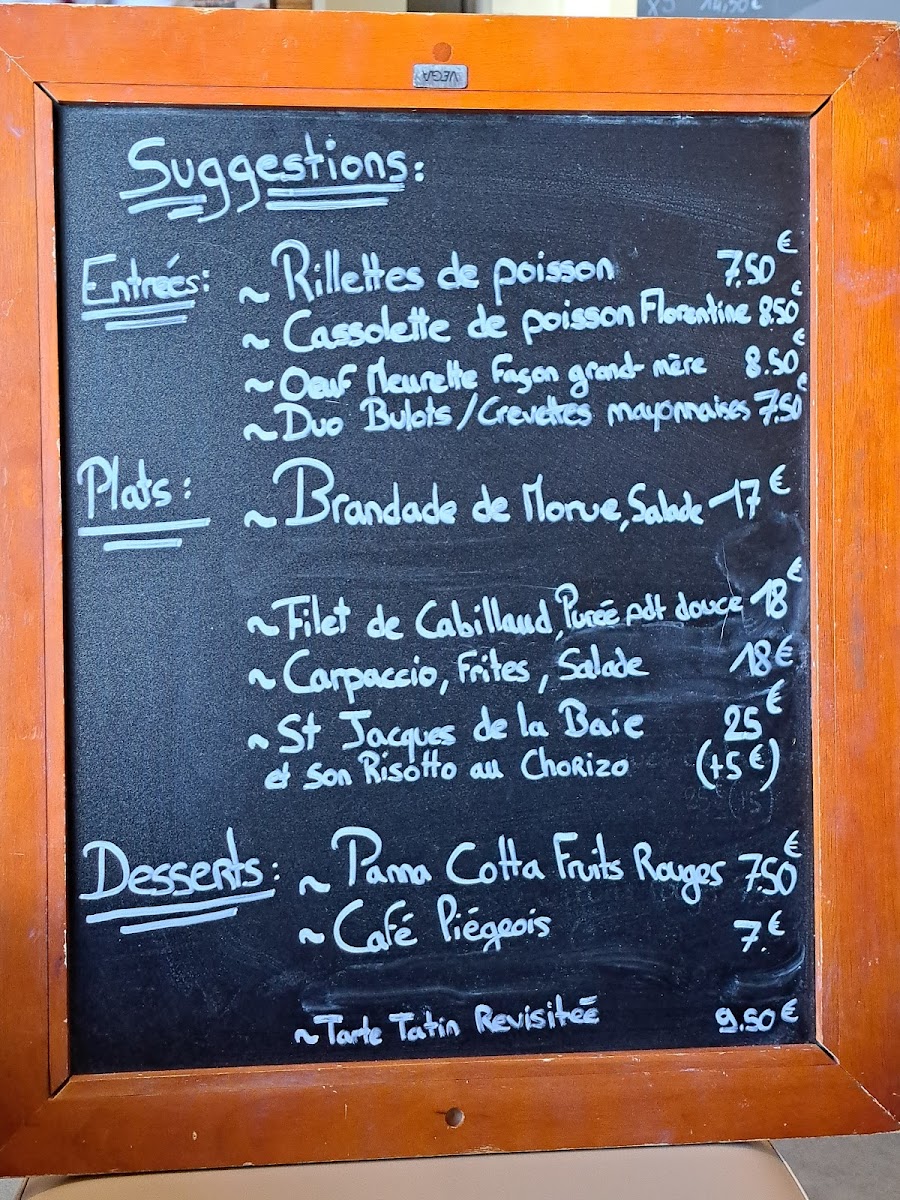 x5 14,50€
VEGA
Suggestions:
Entrées: ~ Rillettes de poisson 7.50€
~ Cassolette de poisson Florentine 8.50€
~ Oeuf Meurette Façon grand mère 8.50€
~ Duo Bulots/Crevettes mayonnaises 7.50€
Plats: ~ Brandade de Morue, Salade 17€
~ Filet de Cabillaud, Purée pdt douce 18€
~ Carpaccio, Frites, Salade 18€
~ St Jacques de la Baie 25€
et son Risotto au Chorizo (+5€)
Desserts: ~ Pana Cotta Fruits Rouges 7.50€
~ Café Piégeois 7.€
~ Tarte Tatin Revisitéé 9.50€